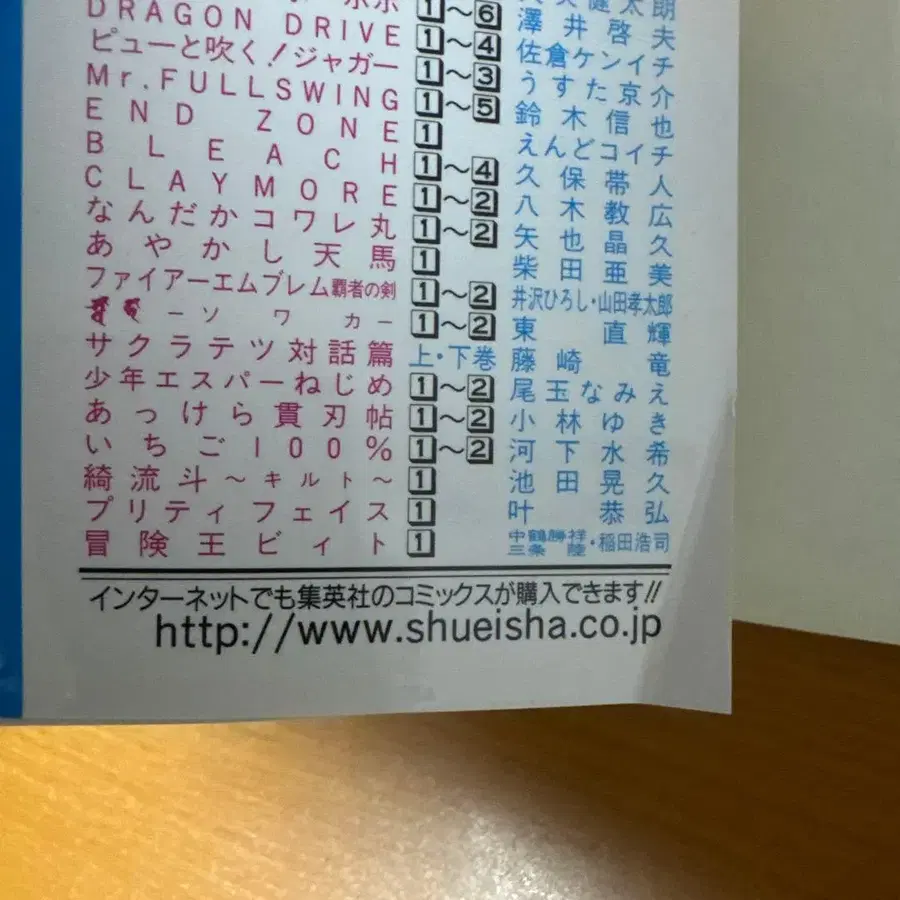 健太朗
1～6 澤井啓夫
DRAGON DRIVE 1～4 佐倉ケンイチ
ピューと吹く!ジャガー 1～3 うすた京介
Mr.FULLSWING 1～5 鈴木信也
END ZONE 1 えんどコイチ
BLEACH 1～4 久保帯人
CLAYMORE 1～2 八木教広
なんだかコワレ丸 1～2 矢也晶久
あやかし天馬 1 柴田亜美
ファイアーエムブレム覇者の剣 1～2 井沢ひろし・山田孝太郎
ーソワカー 1～2 東直輝
サクラテツ対話篇 上・下巻 藤崎竜
少年エスパーねじめ 1～2 尾玉なみえ
あっけら貫刃帖 1～2 小林ゆき
いちご100% 1～2 河下水希
綺流斗～キルト～ 1 池田晃久
プリティフェイス 1 叶恭弘
冒険王ビィト 1 中鶴勝祥 三条陸・稲田浩司
インターネットでも集英社のコミックスが購入できます!!
http://www.shueisha.co.jp